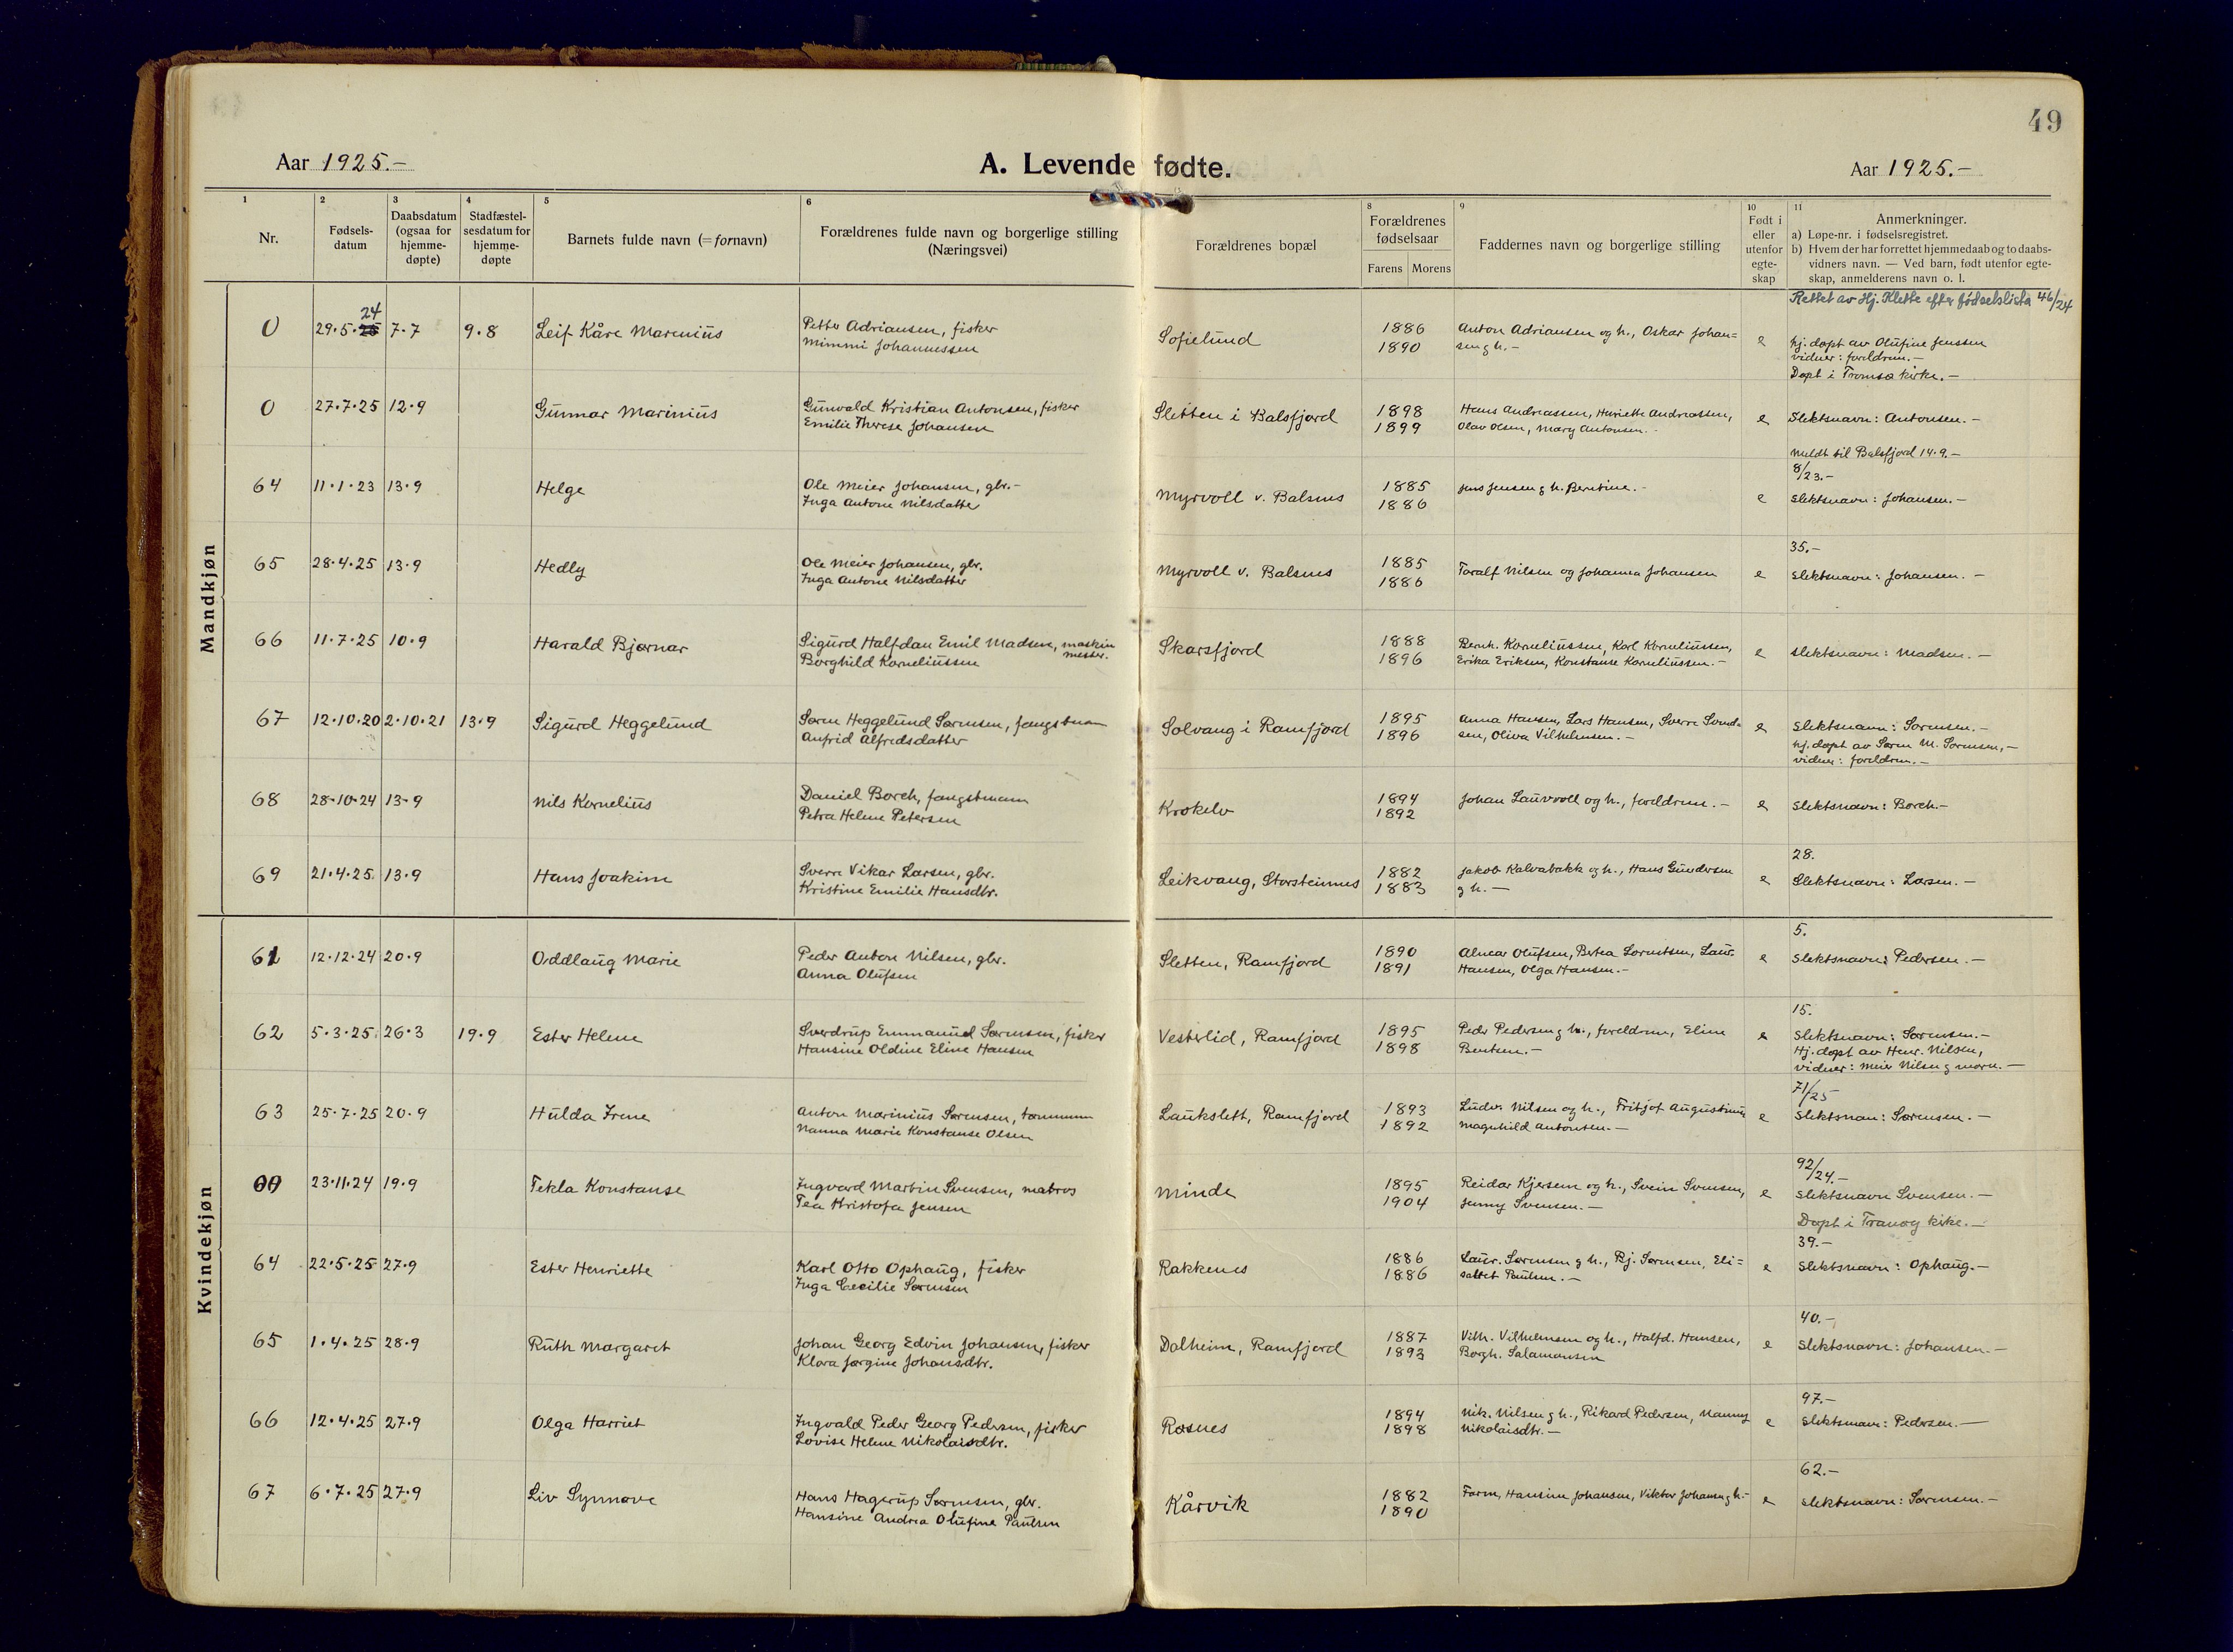 49
Aar 1925.-
A. Levende fødte.
Aar 1925.-
1 2 3 4 5 6 8 9 10 11
Nr.
Fødsels-
datum
Daabsdatum
(ogsaa for
hjemme-
døpte)
Stadfæstel-
sesdatum for
hjemme-
døpte
Barnets fulde navn (= fornavn)
Forældrenes fulde navn og borgerlige stilling
(Næringsvei)
Forældrenes bopæl
Forældrenes
fødselsaar
Farens Morens
Faddernes navn og borgerlige stilling
Født i
eller
utenfor
egte-
skap
Anmerkninger.
a) Løpe-nr. i fødselsregistret.
b) Hvem der har forrettet hjemmedaab og to daabs-
vidners navn. — Ved barn, født utenfor egte-
skap, anmelderens navn o. l.
Mandkjøn
Rettet av Hj. Klette efter fødselslista 46/24
24
0 29.5.25 7.7 9.8 Leif Kåre Marenius Petter Adriansen, fisker Sofielund 1886 Anton Adriansen og h., Oskar Johan= e hj. døpt av Olufine Jenssen
Mimmi Johannessen 1890 sen g h.- vidner: foreldrene.-
Døpt i Tromsø kirke.-
0 27.7.25 12.9 Gunnar Marinius Gunvald Kristian Antonsen, fisker Sletten i Balsfjord 1898 Hans Andreassen, Henriette Andreassen, e Slektsnavn: Antonsen.-
Emilie Therese Johansen 1899 Olav Olsen, Mary Antonsen.-
Meldt til Balsfjord 14.9.-
8/23.-
64 11.1.23 13.9 Helge Ole Meier Johansen, gbr.- Myrvoll v. Balsnes 1885 Jens Jensen g h. Berntine.- e Slektsnavn: Johansen.-
Inga Antone Nilsdatter 1886
35.-
65 28.4.25 13.9 Hedly Ole Meier Johansen, gbr. Myrvoll v. Balsnes 1885 Toralf Nilsen og Johanna Johansen e Slektsnavn: Johansen.-
Inga Antone Nilsdatter 1886
66 11.7.25 10.9 Harald Bjørnar Sigurd Halfdan Emil Madsen, maskin Skarsfjord 1888 Bernh. Korneliussen, Karl Korneliussen, e Slektsnavn: Madsen.-
mester.
Borghild Korneliussen 1896 Erika Eriksen, Konstanse Korneliussen.-
67 12.10.20 2.10.21 13.9 Sigurd Heggelund Søren Heggelund Sørensen, fangstmann Solvang i Ramfjord 1895 Anna Hansen, Lars Hansen, Sverre Svend- e Slektsnavn: Sørensen.-
Anfrid Alfredsdatter 1896 sen, Oliva Vilhelmsen.- hj. døpt av Søren M. Sørensen,-
vidner: foreldrene.-
68 28.10.24 13.9 Nils Kornelius Daniel Borch, fangstmann Krokelv 1894 Johan Lauvvoll og h., foreldrene.- e Slektsnavn: Borch.-
Petra Helene Petersen 1892
28.
69 21.4.25 13.9 Hans Joakim Sverre Vikar Larsen, gbr. Leikvang, Storsteinnes 1882 Jakob Kalvabakk og h., Hans Gundersen e Slektsnavn: Larsen.-
Kristine Emilie Hansdtr. 1883 g h.-
Kvindekjøn
5.
61 12.12.24 20.9 Oddlaug Marie Peder Anton Nilsen, gbr. Sletten, Ramfjord 1890 Alnear Olufsen, Berbea Lorentsen, Laur. e Slektsnavn: Pedersen.-
Anna Olufsen 1891 Hansen, Olga Hansen.-
15.
62 5.3.25 26.3 19.9 Ester Helene Sverdrup Emmanuel Sørensen, fisker Vesterlid, Ramfjord 1895 Peder Pedersen g h., foreldrene, Eline e Slektsnavn: Sørensen.-
Hansine Oldine Eline Hansen 1898 Bentsen.- Hj. døpt av Henr. Nilsen,
vidner: Meier Nilsen g moren.-
71/25
63 25.7.25 20.9 Hulda Irene Anton Marinius Sørensen, tømmermann Laukslett, Ramfjord 1893 Ludv. Nilsen og h., Fritjof Augustinus e Slektsnan: Sørensen.-
Nanna Marie Konstanse Olsen 1892 Magnhild Antonsen.-
92/24.-
00 23.11.24 19.9 Tekla Konstanse Ingvard Martin Svensen, matros Minde 1895 Reidar Kjersem og h., Svein Svensen, e Slektsnavn Svensen.-
Tea Kristofa Jensen 1904 Jenny Svensen.-
Døpt i Tranøy kirke.-
39.-
64 22.5.25 27.9 Ester Henriette Karl Otto Ophaug, fisker Rakkenes 1886 Laur. Sørensen g h., Bj. Sørensen, Eli= e Slektsnavn: Ophaug.-
Inga Cecilie Sørensen 1886 sabet Paulsen.-
40.-
65 1.4.25 28.9 Ruth Margaret Johan Georg Edvin Johansen, fisker Dalheim, Ramfjord 1887 Vilh. Vilhelmsen og h., Halfd. Hansen, e Slektsnavn: Johansen.-
Klara Jørgine Johansdtr. 1893 Borgh. Salamonsen
97.-
66 12.4.25 27.9 Olga Harriet Ingvald Peder Georg Pedersen, fisker Røsnes 1894 Nik. Nilsen g h., Rikard Pedersen, Nanny e Slektsnavn: Pedersen.-
Lovise Helene Nikolaisdtr. 1898 Nikolaisdtr.-
62.-
67 6.7.25 27.9 Liv Synnøve Hans Hagerup Sørensen, gbr. Kårvik 1882 Faren, Hansine Johansen, Viktor Johansen g h.- e Slektsnavn: Sørensen.-
Hansine Andrea Olufine Paulsen 1890